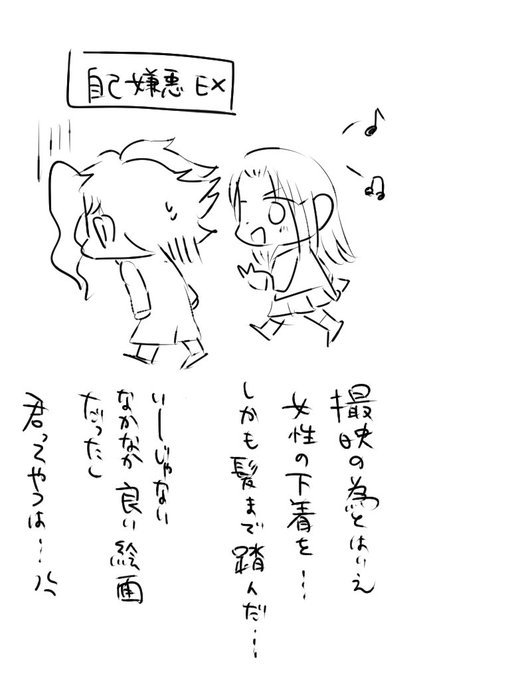 自己嫌悪 EX
撮映の為とはいえ
女性の下着を…
しかも髪まで踏んだ…
いーじゃない
なかなか良い絵面
だったし
君ってやつは…